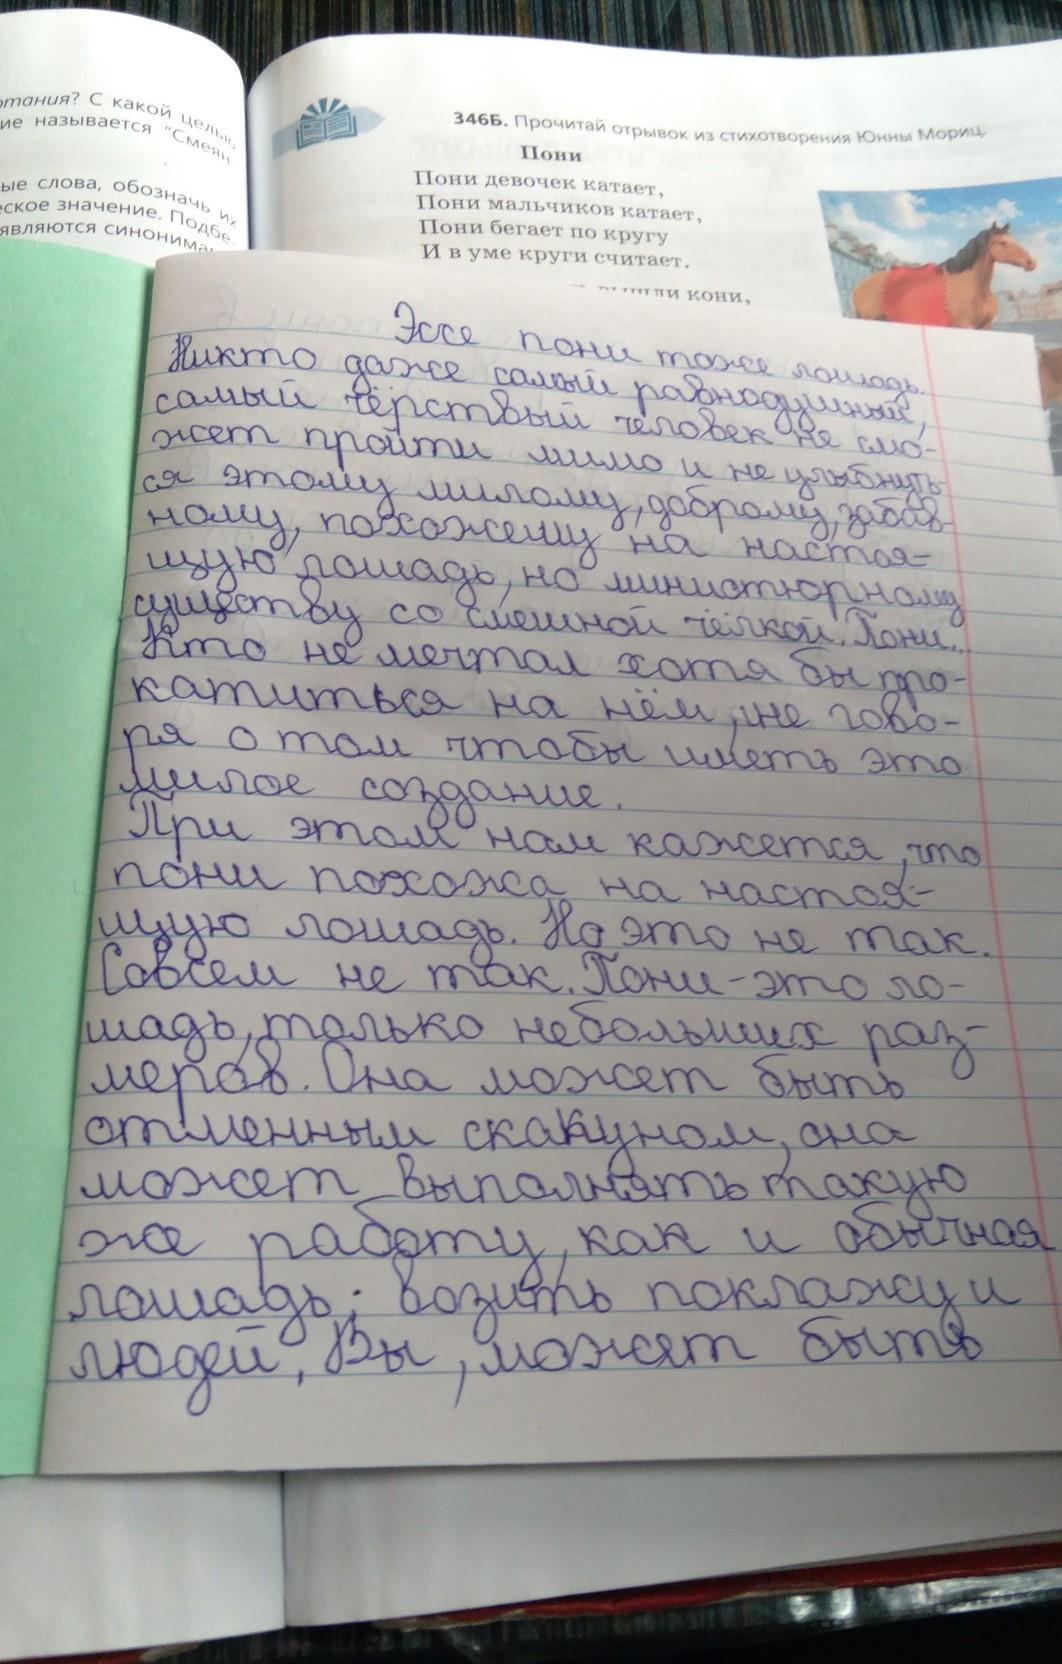 отания? С какой целью
ие называется "Смеян
ые слова, обозначь их
еское значение. Подбе-
являются синонима
346Б. Прочитай отрывок из стихотворения Юнны Мориц.
Пони
Пони девочек катает,
Пони мальчиков катает,
Пони бегает по кругу
И в уме круги считает.
кони,
Эссе пони тоже лошадь.
Никто даже самый равнодушный,
самый чёрствый человек не смо-
жет пройти мимо и не улыбнуть-
ся этому милому, доброму, забав-
ному, похожему на настоя-
щую лошадь, но министюрному
существу со смешной чёлкой. Пони...
Кто не мечтал хотя бы про-
катиться на нём, не гово-
ря о том чтобы иметь это
милое создание.
При этом нам кажется, что
пони похожа на настоя-
щую лошадь. Но это не так.
Совсем не так. Пони-это ло-
шадь, только небольших раз-
меров. Она может быть
отменным скакуном, она
может выполнять такую
же работу, как и обычная
лошадь: возить поклажу и
людей, Вы, может быть